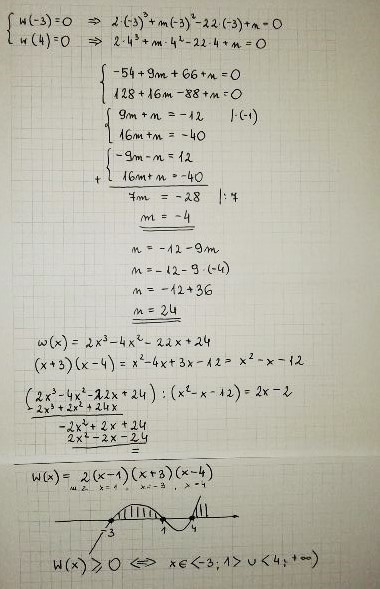 { W(-3)=0 => 2·(-3)³+m(-3)²-22·(-3)+n=0
W(4)=0 => 2·4³+m·4²-22·4+n=0
{ -54+9m+66+n=0
128+16m-88+n=0
{ 9m+n=-12 |·(-1)
16m+n=-40
{ -9m-n=12
+ 16m+n=-40
7m = -28 |:7
m = -4
n = -12-9m
n = -12-9·(-4)
n = -12+36
n = 24
W(x) = 2x³-4x²-22x+24
(x+3)(x-4) = x²-4x+3x-12 = x²-x-12
(2x³-4x²-22x+24):(x²-x-12) = 2x-2
-2x³+2x²+24x
-2x²+2x+24
2x²-2x-24
=
W(x) = 2(x-1)(x+3)(x-4)
x=1 x=-3, x=4
-3 1 4
W(x) ⩾ 0 <=> x∈<-3;1> ∪ <4;+∞)